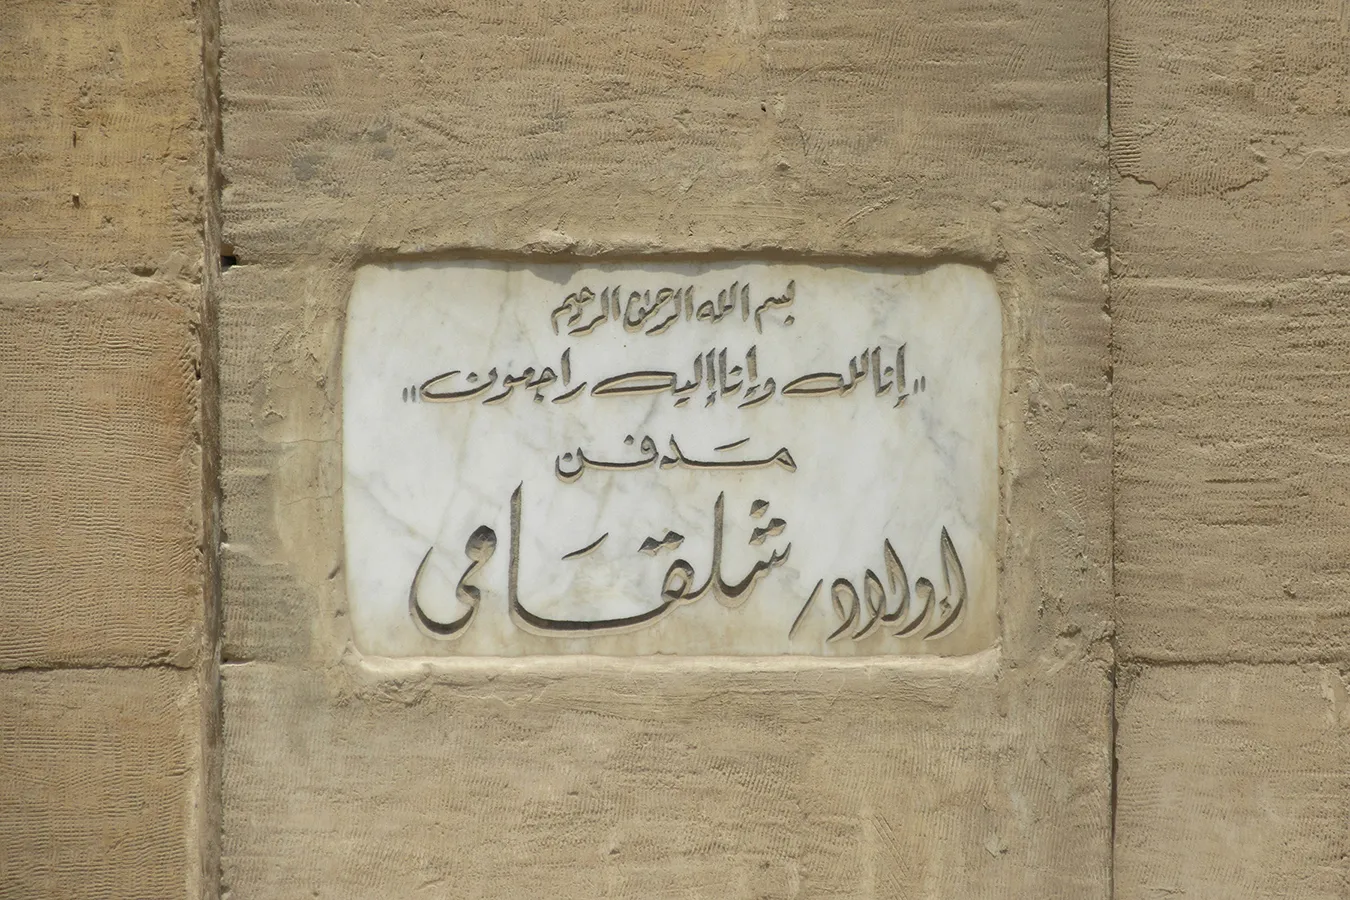 بسم الله الرحمن الرحيم
"إنا لله وإنا إليه راجعون"
مدفن
إولاد / شلقامى